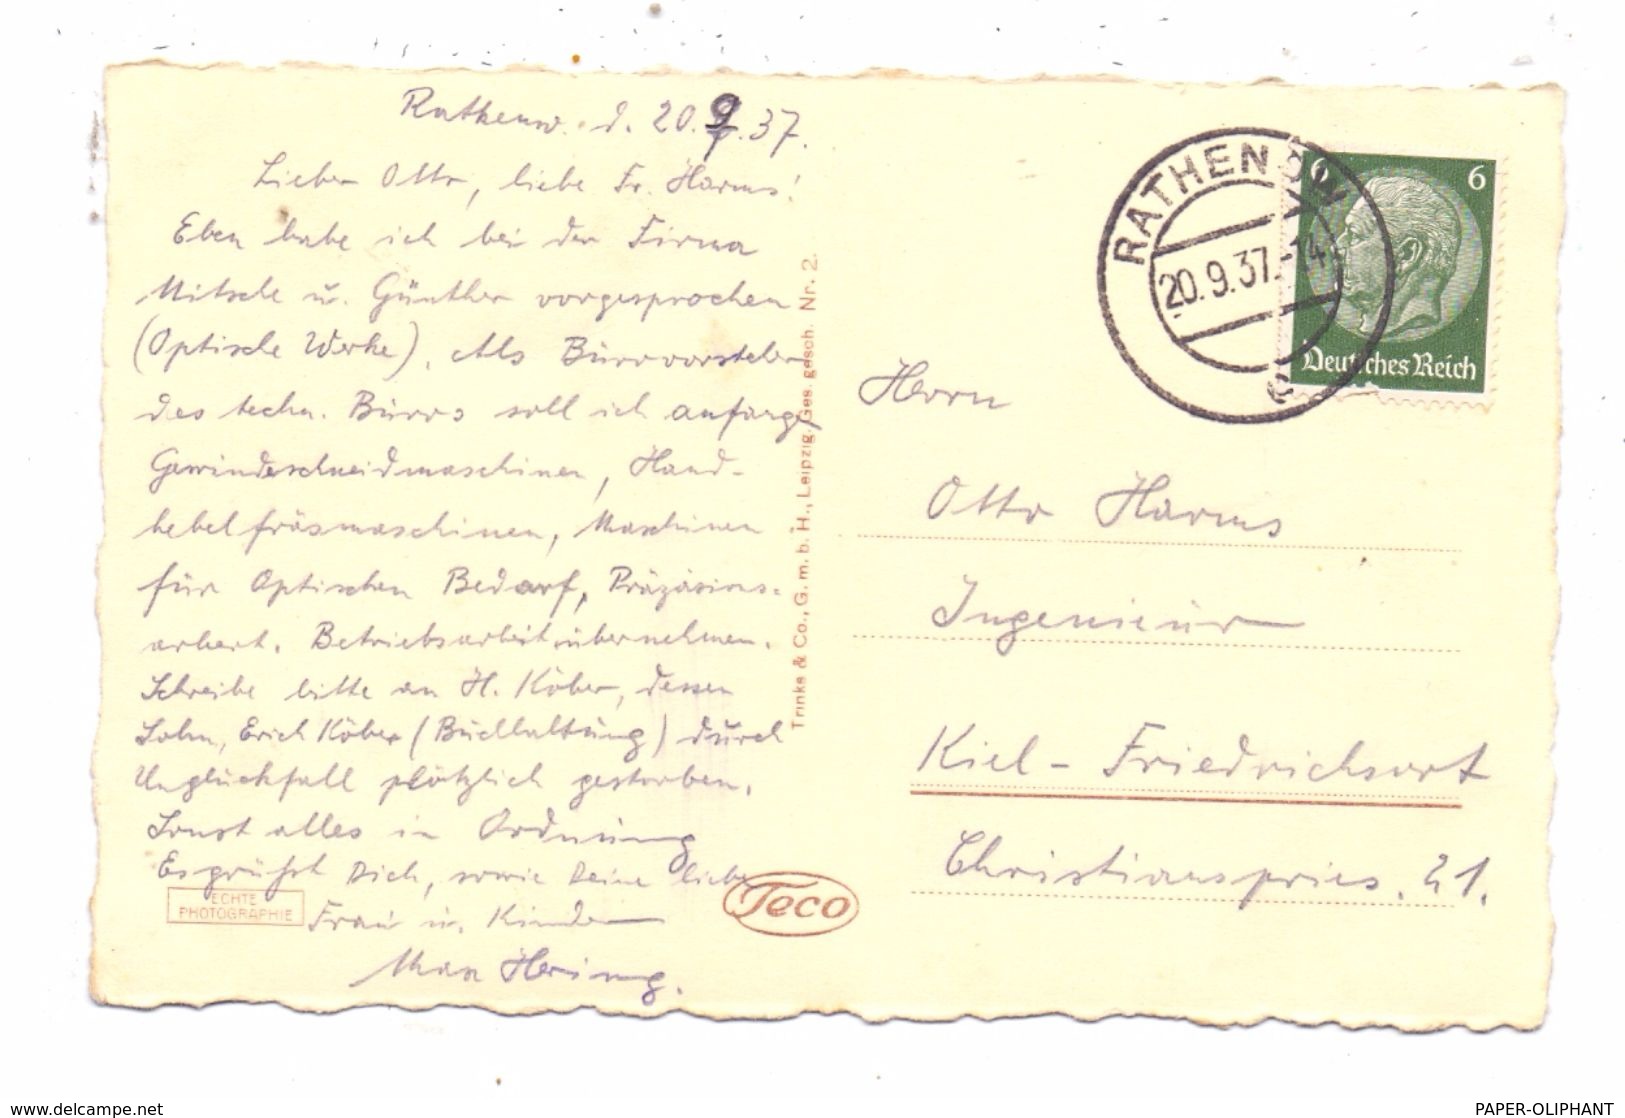 Rathenow. d. 20.9.37.
Lieber Otto, liebe Fr. Harms!
Eben habe ich bei der Firma
Nitsche u. Günther vorgesprochen
(Optische Werke). Als Bürovorsteher
des techn. Büros soll ich anfangs
Gewindeschneidmaschinen, Hand-
hebelfräsmaschinen, Maschinen
für Optischen Bedarf, Präzisions-
arbeit. Betriebsarbeit übernehmen.
Schreibe bitte an H. Köber, dessen
Sohn, Erich Köber (Buchhaltung) durch
Unglückfall plötzlich gestorben.
Sonst alles in Ordnung
Es grüßt Dich, sowie Deine liebe
Frau u. Kinder
Max Hering.
ECHTE
PHOTOGRAPHIE
Trinks & Co., G. m. b. H., Leipzig. Ges. gesch. Nr. 2.
Teco
RATHENOW
20.9.37.-14
c
6 6
Deutsches Reich
Herrn
Otto Harms
Ingenieur
Kiel - Friedrichsort
Christianspries. 21.
www.delcampe.net
PAPER-OLIPHANT